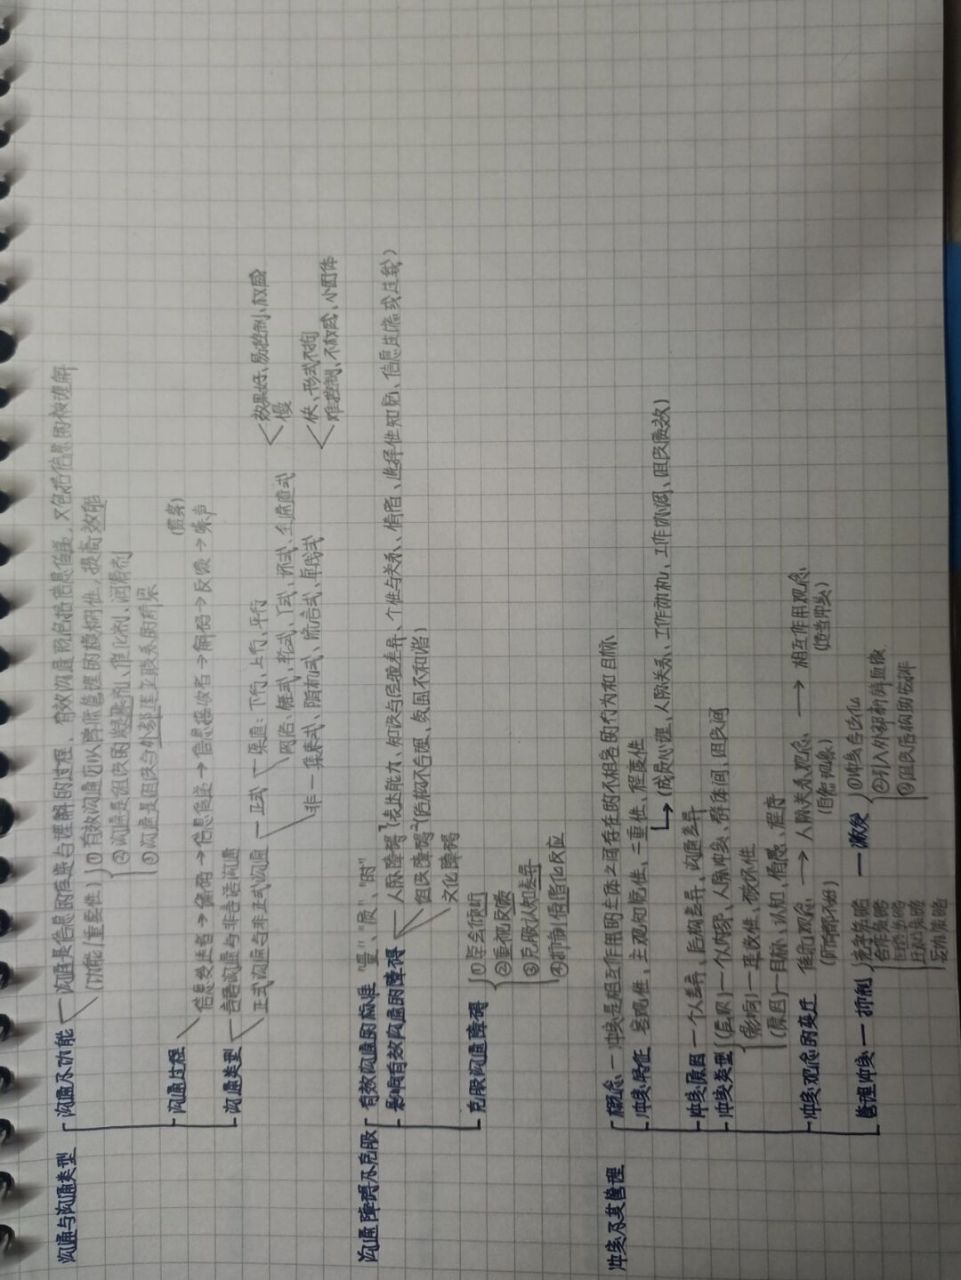 沟通与沟通类型
沟通及功能
沟通是信息的传递与理解的过程，有效沟通既包括信息传递，又包括信息的被理解
(功能/重要性)
①有效沟通可以降低管理的模糊性，提高效能
②沟通是组织的凝聚剂、催化剂、润滑剂
③沟通是组织与外部建立联系的桥梁
沟通过程
(噪突)
信息发送者→编码→信息传递→信息接收者→解码→反馈→噪声
沟通类型
言语沟通与非言语沟通
正式沟通与非正式沟通
正式
渠道：下行、上行、平行
网络：链式、轮式、Y式、环式、全通道式
效果好、易控制、权威
慢
非一集束式、随机式、流言式、单线式
快、形式不拘
难控制、不权威、小团体
沟通障碍及克服
有效沟通的标准 "量"、"质"、"时"
影响有效沟通的障碍
人际障碍(表达能力、知识与经验差异、个性与关系、情绪、选择性知觉、信息过滤或过载)
组织障碍(结构不合理、氛围不和谐)
文化障碍
克服沟通障碍
①学会倾听
②重视反馈
③克服认知差异
④抑制情绪化反应
冲突及其管理
概念一冲突是相互作用的主体之间存在的不相容的行为和目标
冲突特征 客观性、主观知觉性、二重性、程度性
(成员心理、人际关系、工作动机、工作协调、组织绩效)
冲突原因一个人差异、结构差异、沟通差异
冲突类型
(层次)一个人内部、人际冲突、群体间、组织间
(影响)一建设性、破坏性
(原因)一目标、认知、情感、程序
冲突观念的变迁
传统观念→人际关系观念→相互作用观念
(自然现象)
(适当冲突)
管理冲突一抑制
竞争策略
合作策略
回避策略
迁就策略
妥协策略
一激发
①冲突合法化
②引入外部新鲜血液
③组织结构的安排